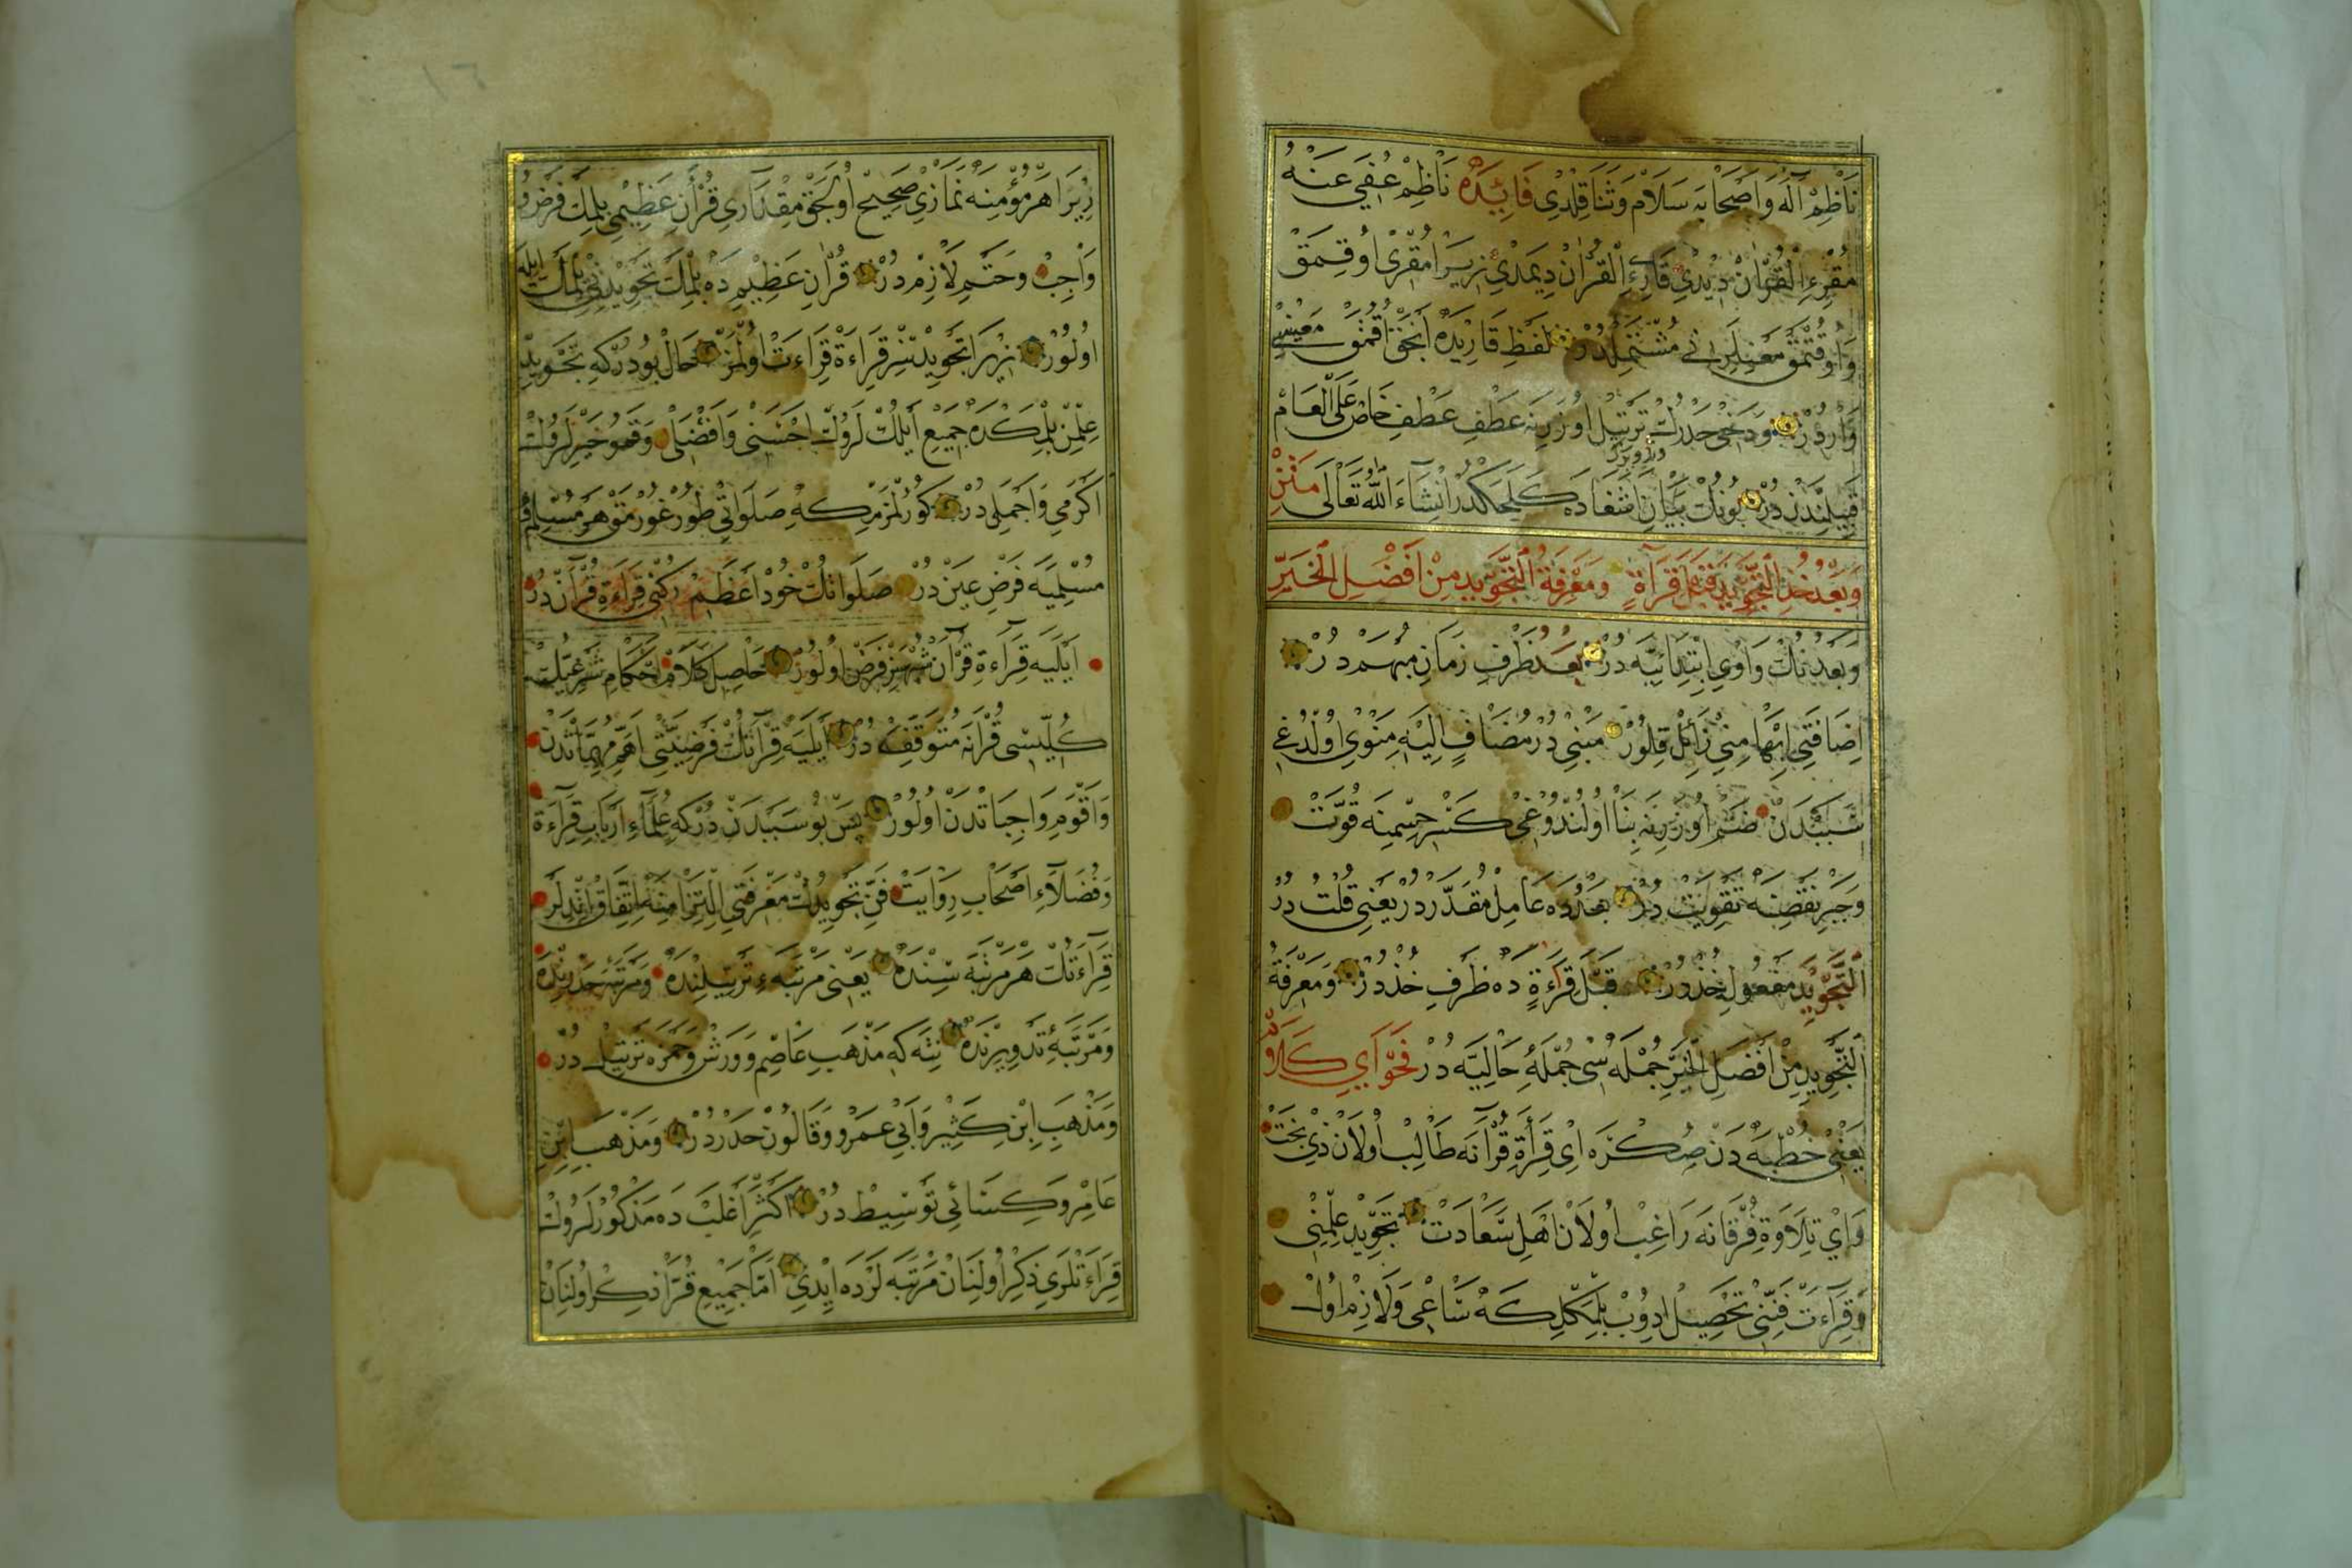 ناظم آله و اصحابه سلام و ثنا قلدى فائده ناظم عفي عنه
مقرئ القرآن ديدى قارئ القرآن ديمدى زيرا مقرى اوقمق
و اوقتمق معنالرينى مشتملدر لفظ قاريده انجق اقمق معنيسى
واردر ودخى حدرك ترتيل اوزرينه عطف عطف خاص على العام
قبيلندن در بونك بيان اشغاده كلجكدر انشاء الله تعالى متن
وبعد خذ التجويد قبل قراءة ومعرفة التجويد من افضل الخير
وبعدنك واوى ابتدائيه در بعد ظرف زمان مبهم در
اضافتى ابهامنى زائل قلور مبنى در مضاف اليه منوى اولدغى
سببدن ضم اوزرينه بنا اولندوغى كسر جسمنه قوت
وجبر نقصنه تقويت در بعدده عامل مقدر در يعنى قلت در
التجويد مفعول خذدر قبل قراءة ده ظرف خذدر ومعرفة
التجويد من افضل الخير جمله سى جملۀ حاليه در فحواى كلام
يعنى خطبه دن صكره اى قراءة قرآنه طالب اولان ذى بخت
واى تلاوة فرقانه راغب اولان اهل سعادت تجويد علمنى
وقراءت فننى تحصيل ادوب بلمكلكه ساعى ولازم اول
١٦
زيرا هر مؤمنه نمازى صحيح اولجق مقدارى قرآن عظيمى بلمك فرض و
واجب وحتم لازم در قرآن عظيمده بلمك تجويدينى بلمك ايله
اولور زيرا تجويدسز قراءة قراءت اولمز حال بودركه تجويد
علمن بلمكده جميع ايلكلرك احسنى وافضلى وقمو خيرلرك
اكرمى واجملى در كورلمزمكه صلواتى طورغورمق هر مسلم و
مسلميه فرض عين در صلواتك خود اعظم ركنى قراءة قرآن در
ايليه قراءة قرآن شهسز فرض اولور حاصل كلام احكام شرعيك
كليسى قرآنه متوقف در ايليه قرآنك فرضيتى اهم مهماتدن
واقوم واجباتدن اولور پس بو سببدن دركه علماء ارباب قراءة
وفضلاء اصحاب روايت فن تجويدك معرفتى التزامنه اتفاق اتديلر
قراءتك هر مرتبه سنده يعنى مرتبه ء ترتيلنده ومرتبه حدرنده
ومرتبۀ تدويرنده نته كه مذهب عاصم وورش وحمزه ترتيل در
ومذهب ابن كثير وابى عمرو وقالون حدردر ومذهب ابن
عامر وكسائى توسيط در اكثر اغلب ده مذكورلرك
قراءتلرى ذكر اولنان مرتبه لرده ايدى اما جميع قرا ذكر اولنان